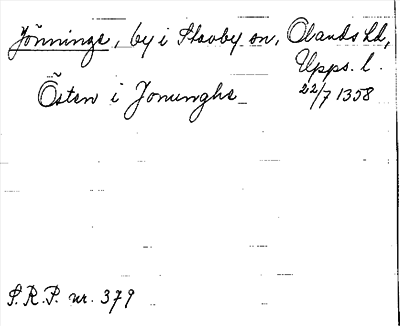 Jönninge, by i Stavby sn, Olands hd,
Upps. l.
Östen i Jonunghe 22/7 1358
S.R.P. nr. 379